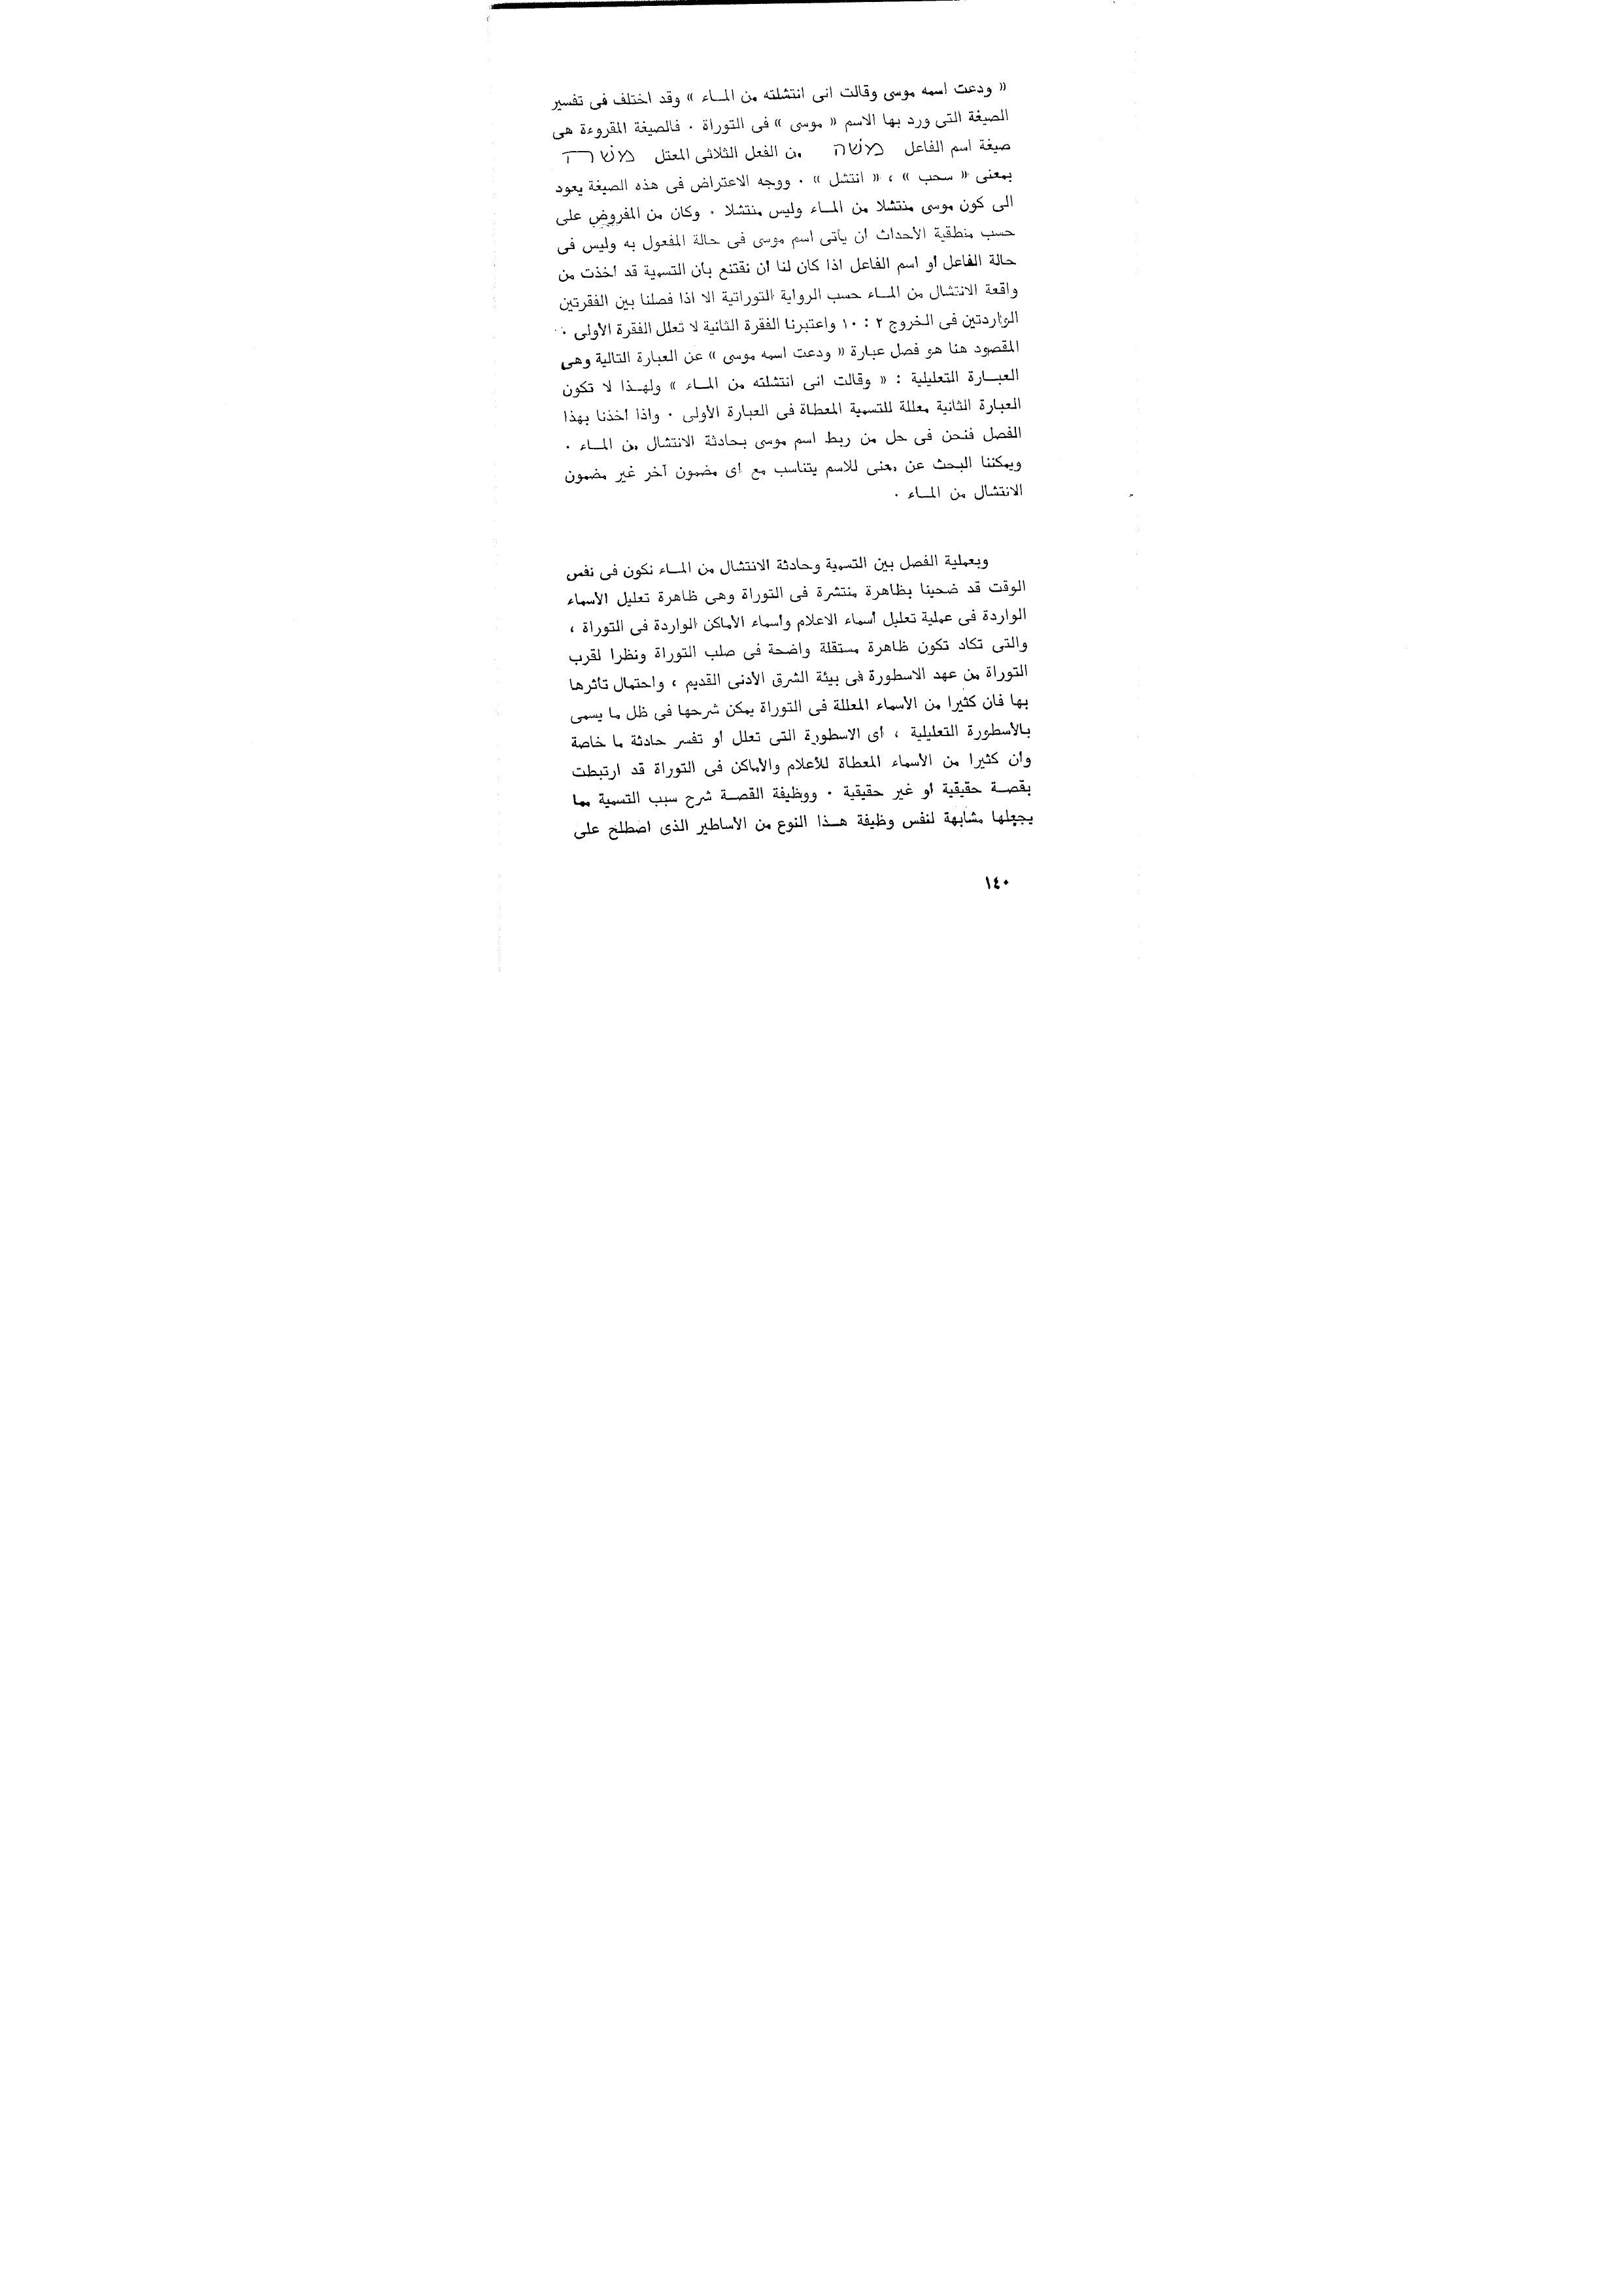 « ودعت اسمه موسى وقالت انى انتشلته من المــاء » وقد اختلف فى تفسير
الصيغة التى ورد بها الاسم « موسى » فى التوراة ٠ فالصيغة المقروءة هى
صيغة اسم الفاعل משה من الفعل الثلاثى المعتل משה
بمعنى « سحب » ، « انتشل » ٠ ووجه الاعتراض فى هذه الصيغة يعود
الى كون موسى منتشلا من المــاء وليس منتشلا ٠ وكان من المفروض على
حسب منطقية الأحداث أن يأتى اسم موسى فى حالة المفعول به وليس فى
حالة الفاعل أو اسم الفاعل اذا كان لنا أن نقتنع بأن التسمية قد أخذت من
واقعة الانتشال من المــاء حسب الرواية التوراتية الا اذا فصلنا بين الفقرتين
الواردتين فى الخروج ٢ : ١٠ واعتبرنا الفقرة الثانية لا تعلل الفقرة الأولى ٠
المقصود هنا هو فصل عبارة « ودعت اسمه موسى » عن العبارة التالية وهى
العبــارة التعليلية : « وقالت انى انتشلته من المــاء » ولهــذا لا تكون
العبارة الثانية معللة للتسمية المعطاة فى العبارة الأولى ٠ واذا أخذنا بهذا
الفصل فنحن فى حل من ربط اسم موسى بحادثة الانتشال من المــاء ٠
ويمكننا البحث عن معنى للاسم يتناسب مع أى مضمون آخر غير مضمون
الانتشال من المــاء ٠
وبعملية الفصل بين التسمية وحادثة الانتشال من المــاء نكون فى نفس
الوقت قد ضحينا بظاهرة منتشرة فى التوراة وهى ظاهرة تعليل الأسماء
الواردة فى عملية تعليل أسماء الاعلام وأسماء الأماكن الواردة فى التوراة ،
والتى تكاد تكون ظاهرة مستقلة واضحة فى صلب التوراة ونظرا لقرب
التوراة من عهد الاسطورة فى بيئة الشرق الأدنى القديم ، واحتمال تأثرها
بها فان كثيرا من الأسماء المعللة فى التوراة يمكن شرحها فى ظل ما يسمى
بالأسطورة التعليلية ، أى الاسطورة التى تعلل أو تفسر حادثة ما خاصة
وأن كثيرا من الأسماء المعطاة للأعلام والأماكن فى التوراة قد ارتبطت
بقصــة حقيقية أو غير حقيقية ٠ ووظيفة القصــة شرح سبب التسمية مما
يجعلها مشابهة لنفس وظيفة هــذا النوع من الأساطير الذى اصطلح على
١٤٠